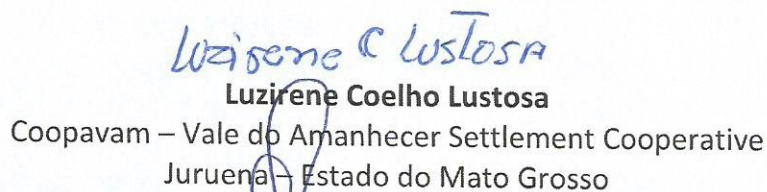 Luzirene C Lustosa
Luzirene Coelho Lustosa
Coopavam – Vale do Amanhecer Settlement Cooperative
Juruena – Estado do Mato Grosso